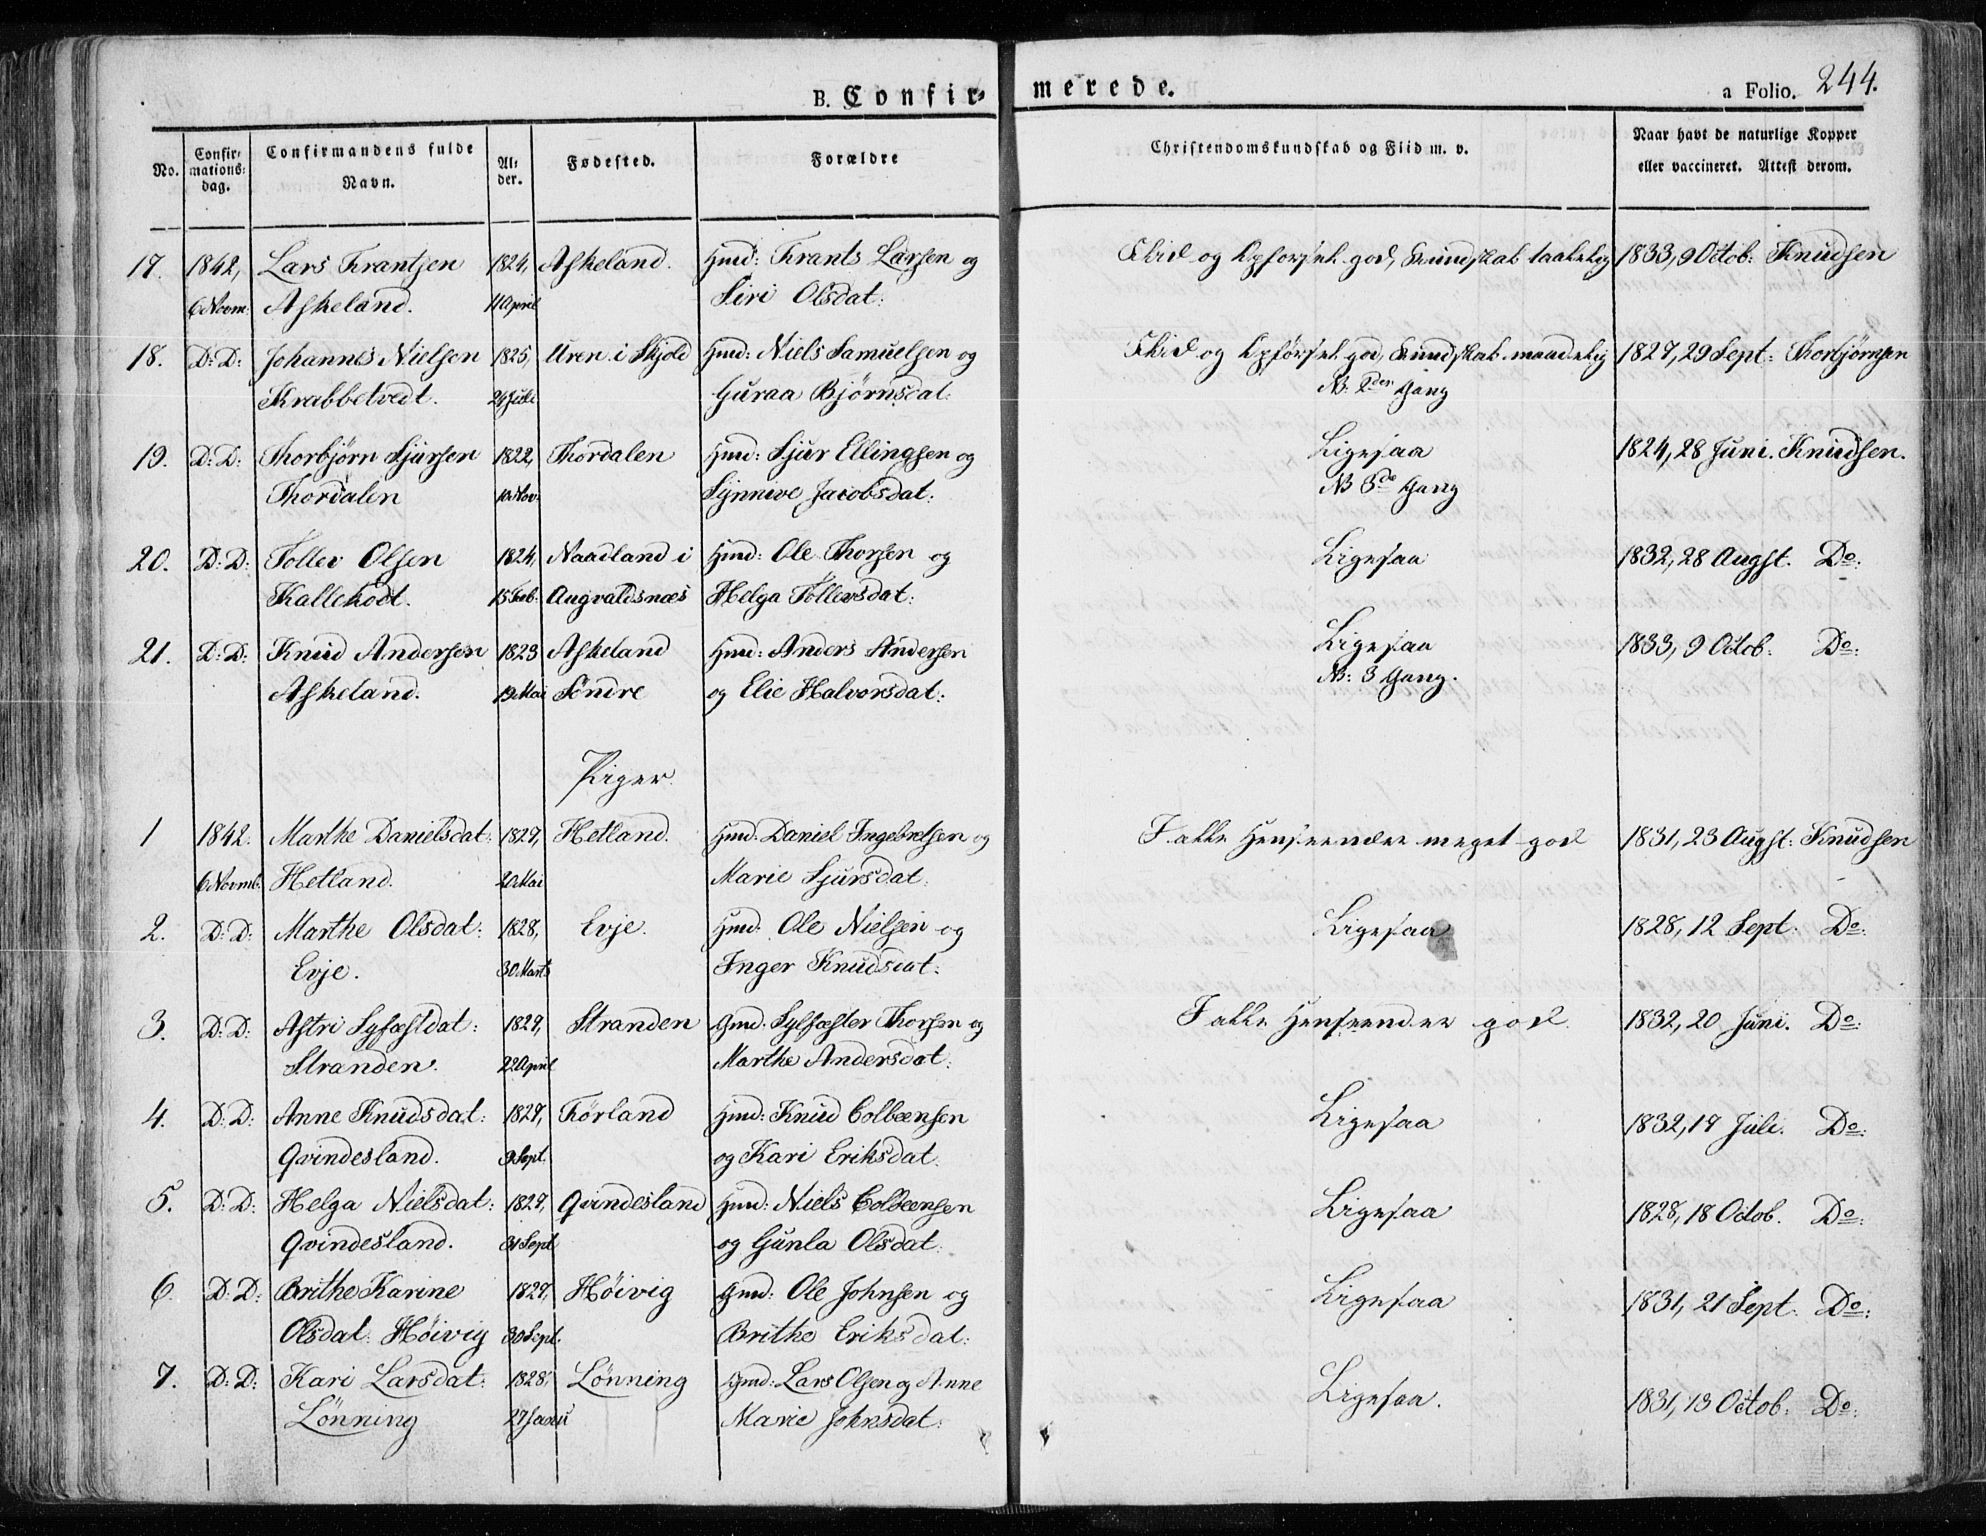 B. Confirmerede.
a Folio. 244.
No. Confirmations-dag. Confirmandens fulde Navn. Alder. Fødested. Forældre Christendomskundskab og Flid m. v. Naar havt de naturlige Kopper eller vaccineret. Attest derom.
17. 1842, Lars Frantsen 1824, Askeland. Gmd: Frants Larsen og Flid og Opførsel god, Kundskab taalelig 1833, 9 Octob: Knudsen
6 Novm: Askeland. 11 April Siri Olsdat:
18. D: D: Johannes Nielsen 1825, Uren i Skjold Gmd: Niels Samuelsen og Flid og Opførsel god, Kundskab maadelig 1827, 29 Sept: Thorbjørnsen
Krabbetvedt. 24 Juli Guraa Bjørnsdat: NB: 2den Gang
19. D: D: Thorbjørn Sjursen 1822, Thordalen Gmd: Sjur Ellingsen og Ligesaa 1824, 28 Juni. Knudsen.
Thordalen 10 Nov: Synnive Jacobsdat: NB 3de Gang
20. D: D: Tollev Olsen 1824, Naadland i Gmd: Ole Thorsen og Ligesaa 1832, 28 Augst. Do:
Kallekodt. 15 Feb. Augvaldsnæs Helga Tollevsdat:
21. D: D: Knud Andersen 1823 Askeland Gmd: Anders Andersen Ligesaa 1833, 9 Octob. Do:
Askeland. 19 Mai Søndre og Elie Halvorsdat: NB: 3 Gang.
Piger
1 1842. Marthe Danielsdat: 1827, Hetland. Gmd: Daniel Ingebretsen og I alle Henseender meget god 1831, 23 Augst: Knudsen
6 Novmb. Hetland. 20 Mai Marie Sjursdat.
2. D: D: Marthe Olsdat: 1828, Evje. Gmd: Ole Nielsen og Ligesaa 1828, 12 Sept: Do:
Evje. 30 Marts Inger Knudsdat:
3. D: D: Astri Sylfæstdat: 1827, Stranden Gmd: Sylfæster Thorsen og I alle Henseender god. 1832, 20 Juni. Do:
Stranden. 22 April Marthe Andersdat:
4. D: D: Anne Knudsdat: 1827, Førland Gmd: Knud Colbeensen Ligesaa 1832, 17 Juli. Do:
Qvindesland. 9 Sept. og Kari Eriksdat.
5. D: D: Helga Nielsdat: 1827, Qvindesland Gmd: Niels Colbeensen Ligesaa 1828, 18 Octob. Do:
Qvindesland. 31 Sept og Gunla Olsdat:
6. D: D: Brithe Karine 1827, Høivig Gmd: Ole Johnsen og Ligesaa 1831, 21 Sept. Do:
Olsdat: Høivig 30 Sept. Brithe Eriksdat:
7. D: D: Kari Larsdat: 1828, Lønning Gmd: Lars Olsen og Anne Ligesaa. 1831, 13 Octob: Do:
Lønning 27 Janu Marie Johnsdat: